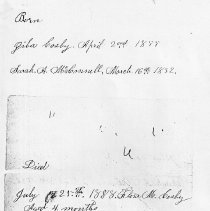 Born
Gila Cosby. April 2nd 1888
Sarah A. McConnell, March 16th 1832.
Died
July 25th. 1888. M. Cosby
Aged 4 months